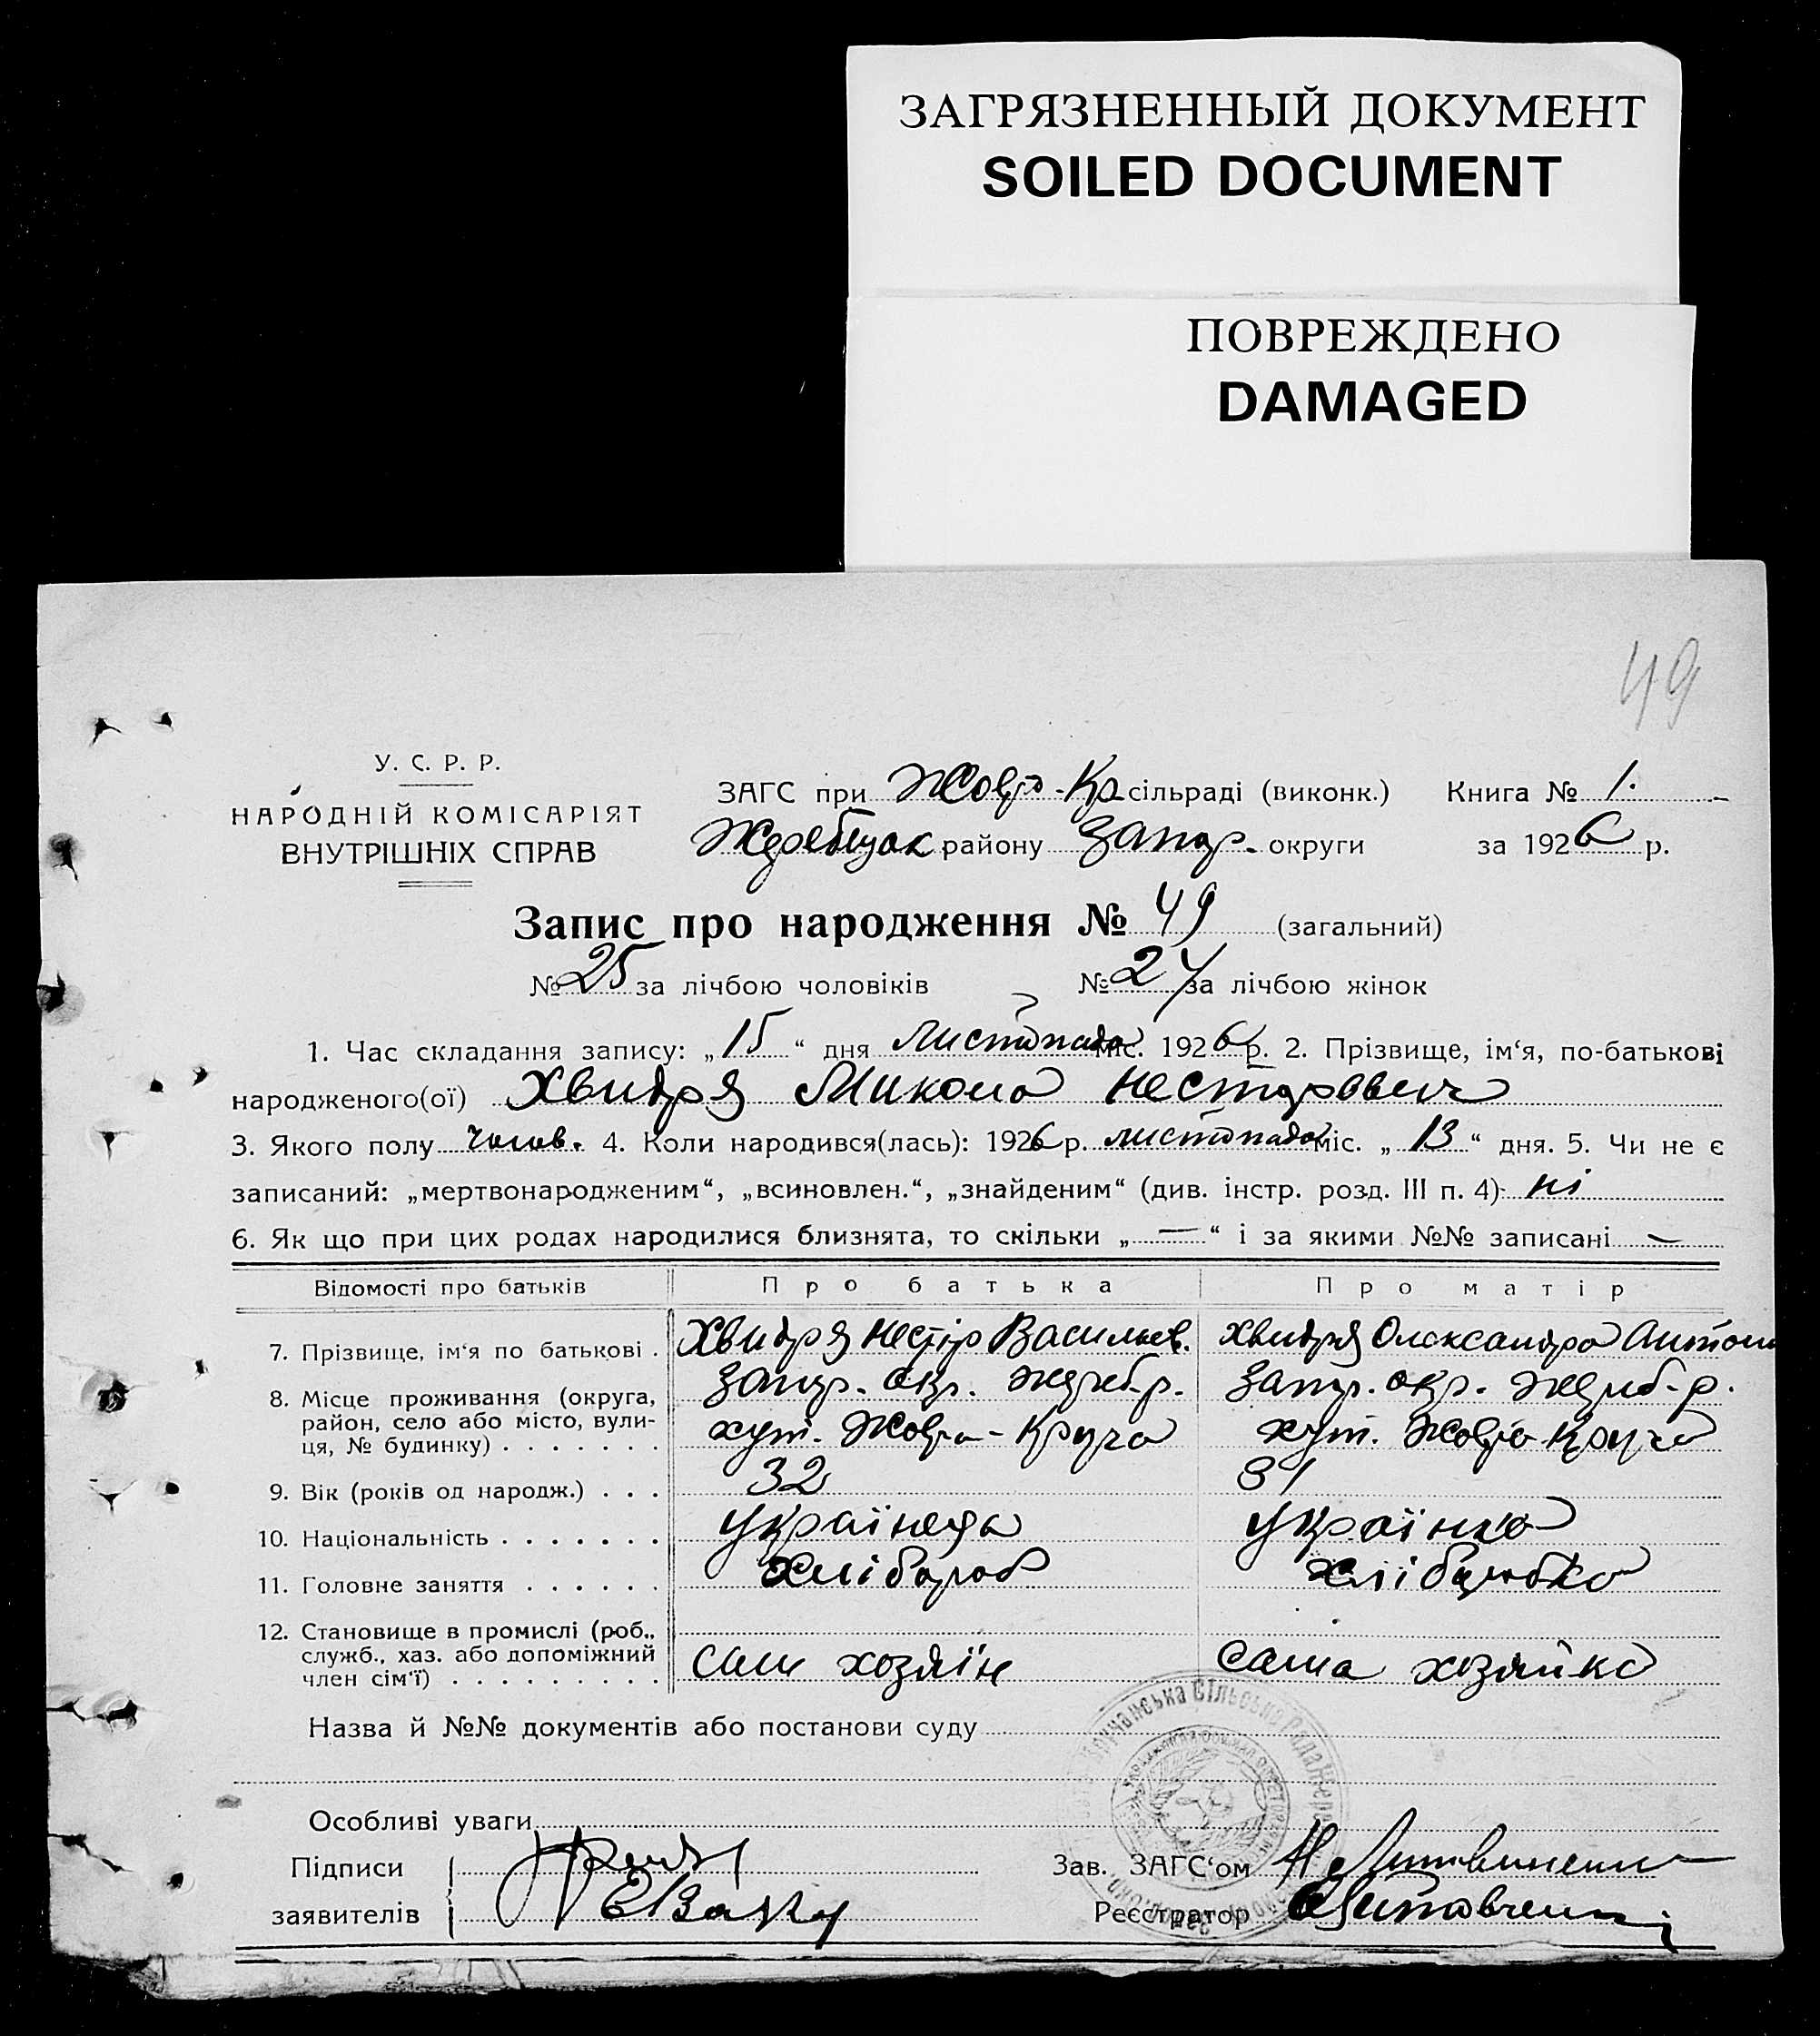 ЗАГРЯЗНЕННЫЙ ДОКУМЕНТ
SOILED DOCUMENT
ПОВРЕЖДЕНО
DAMAGED
49
У. С. Р. Р.
НАРОДНІЙ КОМІСАРІЯТ
ВНУТРІШНІХ СПРАВ
ЗАГС при Жовто-Кр сільраді (виконк.) Книга № 1.
району Запор. округи за 1926 р.
Запис про народження № 49 (загальний)
№ 25 за лічбою чоловіків № 24 за лічбою жінок
1. Час складання запису: „15“ дня листопада міс. 1926 р. 2. Прізвище, ім‘я, по-батькові
народженого(ої) Хвидря Микола Несторович
3. Якого полу чолов. 4. Коли народився(лась): 1926 р. листопада міс. „13“ дня. 5. Чи не є
записаний: „мертвонародженим“, „всиновлен.“, „знайденим“ (див. інстр. розд. III п. 4) ні
6. Як що при цих родах народилися близнята, то скільки „—“ і за якими №№ записані —
Відомості про батьків Про батька Про матір
7. Прізвище, ім‘я по батькові . Хвидря Нестір Васильев. Хвидря Олександра Антон
8. Місце проживання (округа, район, село або місто, вулиця, № будинку) . . . . . . . Запор. окр. Жереб-р. Запор. окр. Жереб-р.
хут. Жовто-Круча хут. Жовто-Круча
9. Вік (років од народж.) . . . 32 31
10. Національність . . . . . . . українець українка
11. Головне заняття . . . . . . хлібороб хліборобка
12. Становище в промислі (роб., служб., хаз. або допоміжний член сім‘ї) . . . . . . . . . сам хозяїн сама хозяйка
Назва й №№ документів або постанови суду
Особливі уваги
Підписи
заявителів
Зав. ЗАГС‘ом Литвиненко
Реєстратор